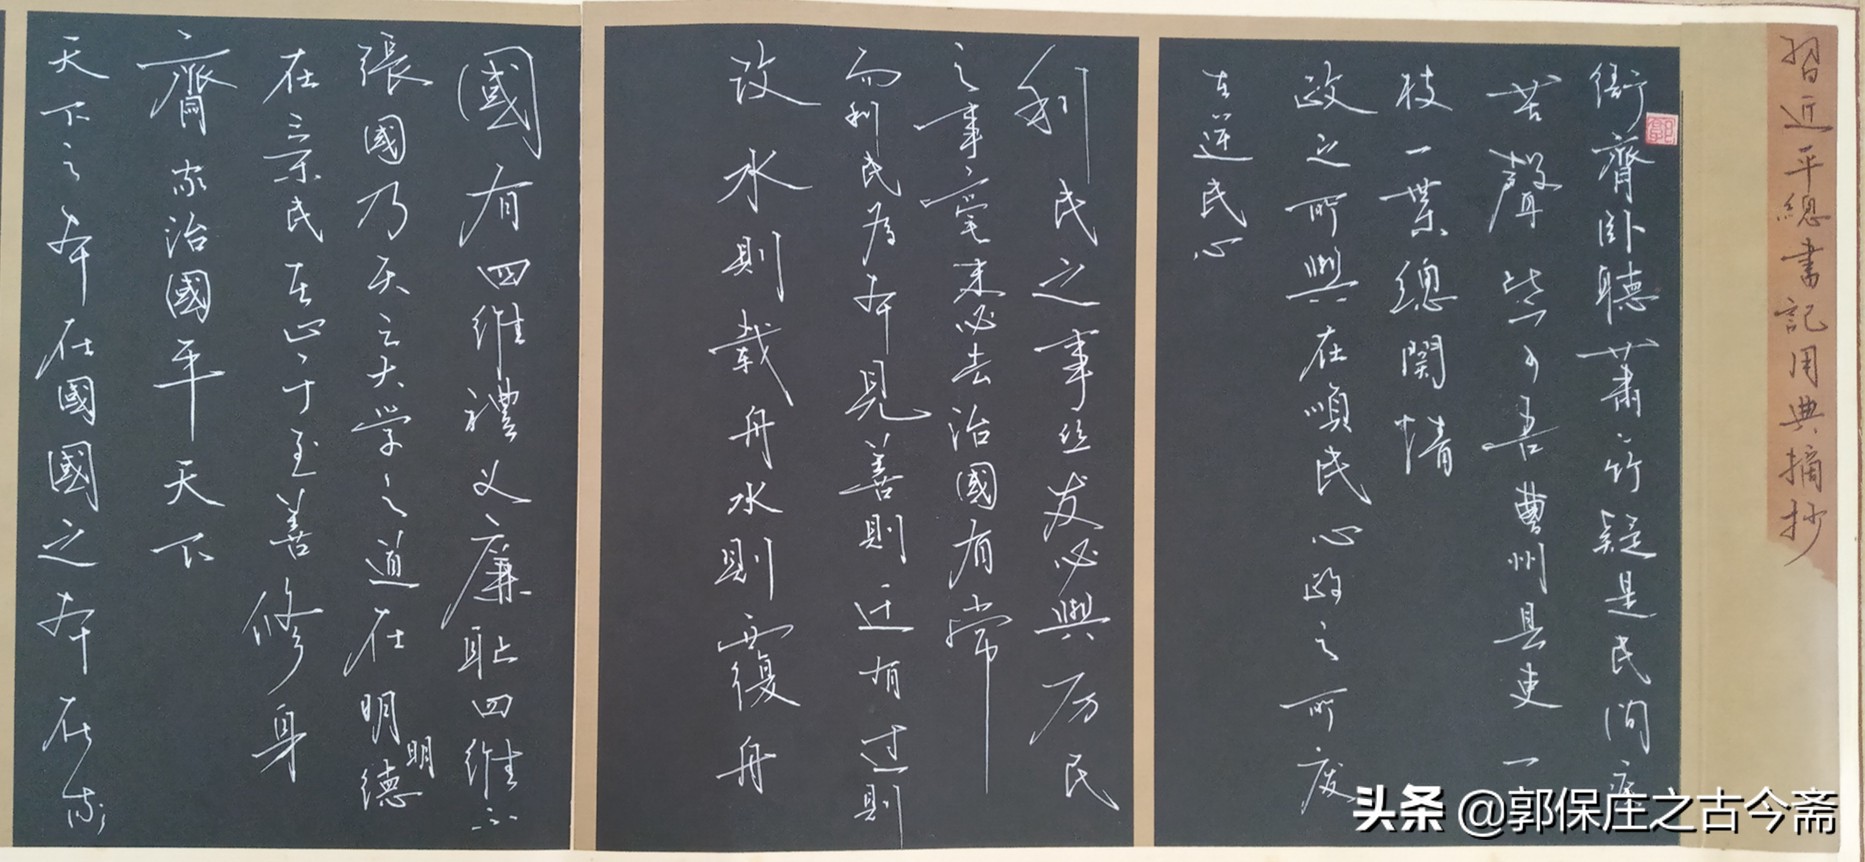 習近平總書記用典摘抄
衙齋卧聽蕭竹疑是民間疾
苦聲些小吾曹州县吏一
枝一葉總関情
政之所興在順民心政之所废
在逆民心
利民之事丝发必興厉民
之事毫末必去治國有常
而利民為本見善則迁有过則
改水則载舟水則覆舟
國有四维禮义廉耻四维不
張國乃灭之大学之道在明明德
在亲民在止于至善修身
齊家治國平天下
天下之本在國國之本在家
头条 @郭保庄之古今斋